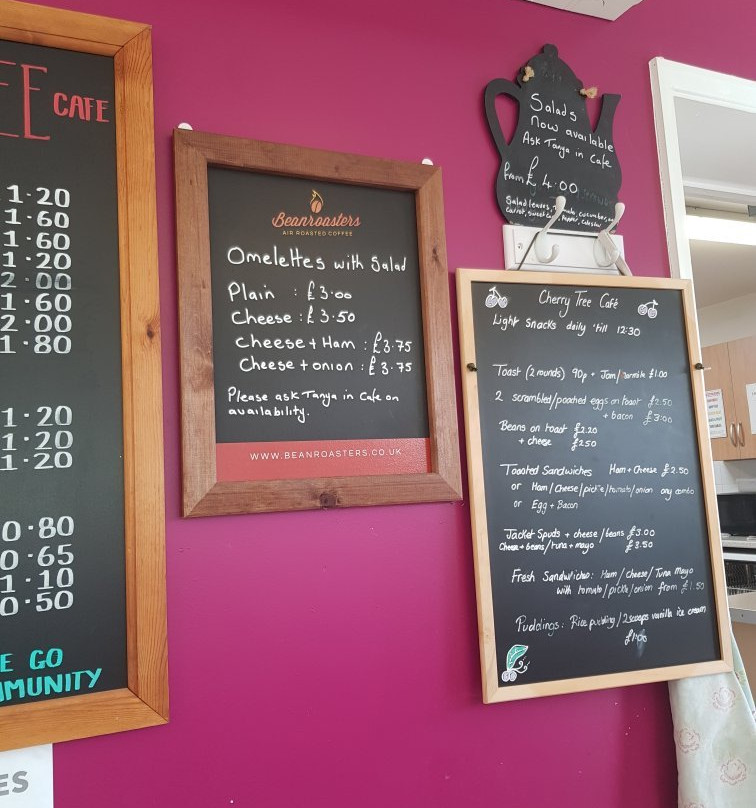 EE CAFE
1.20
1.60
1.60
1.20
2.00
1.60
2.00
1.80
1.20
1.20
1.20
0.80
0.65
1.10
0.50
E GO
MMUNITY
ES
Beanroasters
AIR ROASTED COFFEE
Omelettes with Salad
Plain : £3.00
Cheese : £3.50
Cheese + Ham : £3.75
Cheese + onion : £3.75
Please ask Tanya in Cafe on
availability.
WWW.BEANROASTERS.CO.UK
Salads
Now available
Ask Tanya in Cafe
From £4.00
Salad leaves, cucumber,
carrot, sweet pepper, coleslaw
Cherry Tree Café
Light Snacks daily 'till 12:30
Toast (2 rounds) 90p + Jam/marmite £1.00
2 scrambled/poached eggs on toast £2.50
+ bacon £3.00
Beans on toast £2.20
+ cheese £2.50
Toasted Sandwiches Ham + Cheese £2.50
or Ham/Cheese/pickle/tomato/onion any combo
or Egg + Bacon
Jacket Spuds + cheese/beans £3.00
Cheese + beans/tuna + mayo £3.50
Fresh Sandwiches: Ham/Cheese/Tuna Mayo
with tomato/pickle/onion from £1.50
Puddings: Rice pudding/2 scoops vanilla ice cream
£1.00